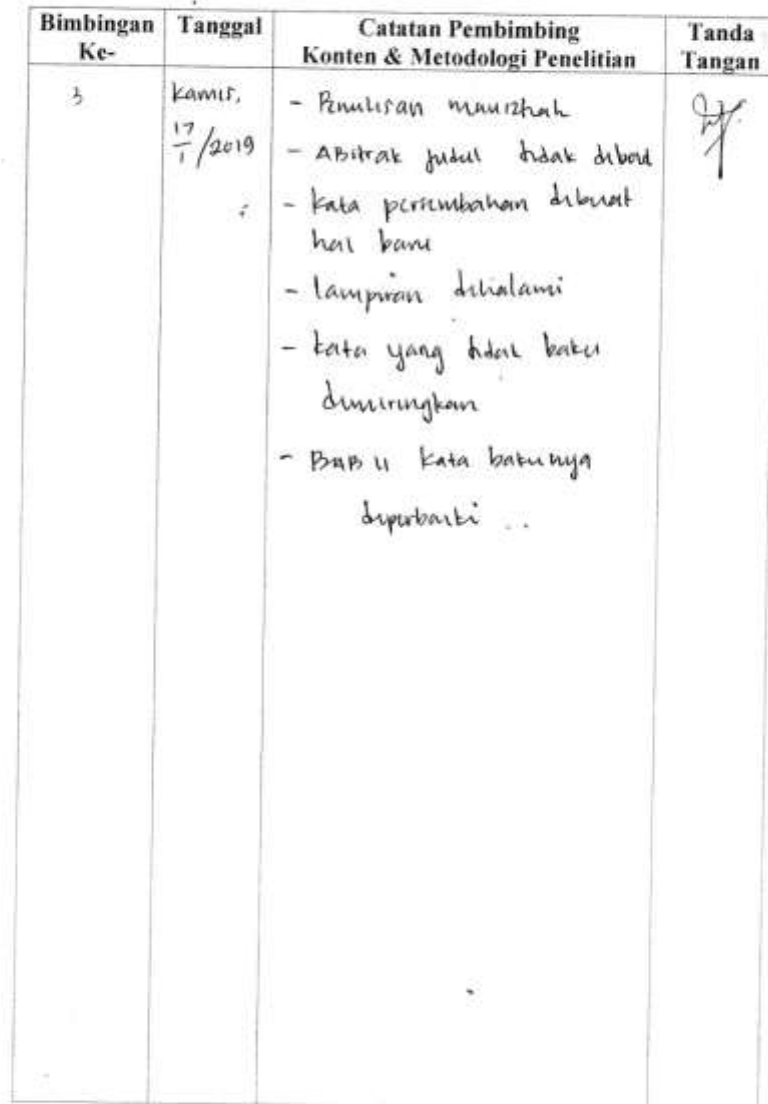 Bimbingan Ke-
Tanggal
Catatan Pembimbing
Konten & Metodologi Penelitian
Tanda Tangan
3
Kamis,
17/1/2019
- Penulisan mauizhah
- ABstrak judul tidak dibold
- kata persembahan dibuat
hal baru
- lampiran dihalami
- kata yang tidak baku
dimiringkan
- BAB II kata bakunya
diperbaiki ..